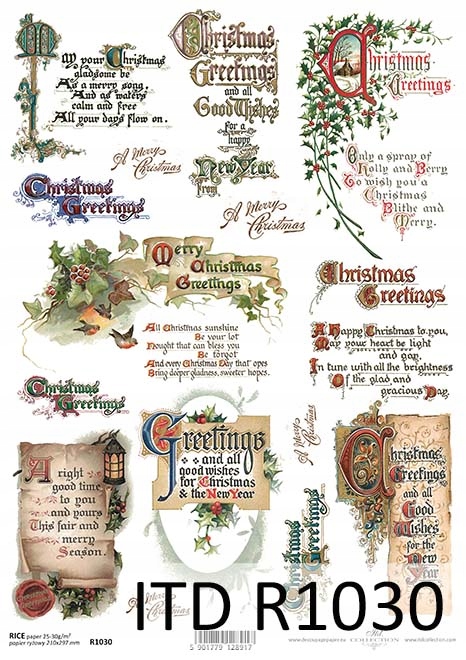 May your Christmas
gladsome be
As a merry song,
And as waters
calm and free
All your days flow on.
Christmas
Greetings
and all
Good Wishes
for a
happy
New Year
from
Christmas
Greetings
Only a spray of
Holly and Berry
To wish you a
Christmas
Blithe and
Merry.
A Merry
Christmas
Christmas
Greetings
A Merry
Christmas
Merry
Christmas
Greetings
All Christmas sunshine
Be your lot
Nought that can bless you
Be forgot
And every Christmas Day that opes
Bring deeper gladness, sweeter hopes.
Christmas
Greetings
A Happy Christmas to you,
May your heart be light
and gay,
In tune with all the brightness
Of the glad and
gracious Day.
Christmas
Greetings
A right
good time
to you
and yours
This fair and
merry
Season.
Greetings
and all
good wishes
for Christmas
& the New Year
A Merry
Christmas
Christmas
Greetings
Christmas
Greetings
and all
Good
Wishes
for the
New
Year
ITD R1030
RICE paper 25-30g/m²
papier ryżowy 210x297 mm
R1030
5 901779 128917
www.decoupagepaper.eu
ITD
COLLECTION
www.itdcollection.com